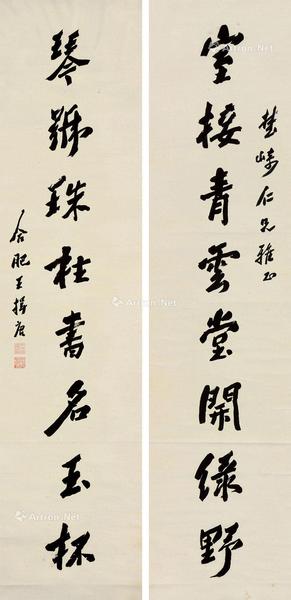 楚峰仁兄雅正
室接青雲堂開綠野
琴號珠柱書名玉杯
合肥王揖唐
Artron.Net
Artron.Net
Artron.Net
Artron.Net